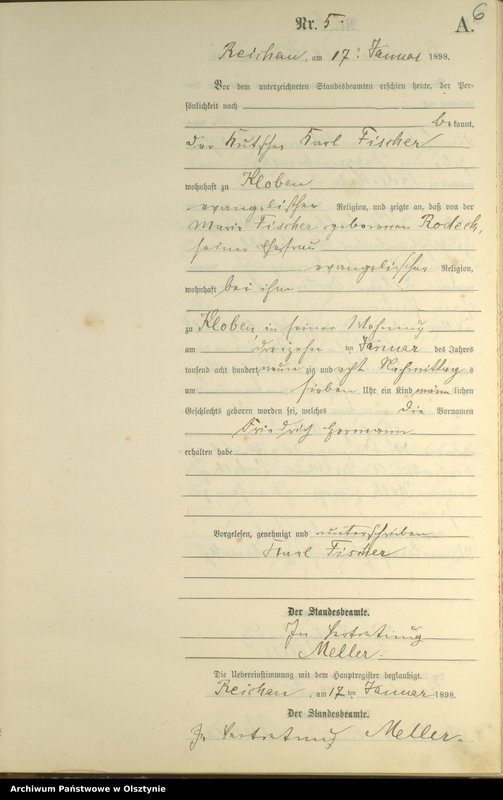 6
Nr. 5.
A.
Reichau, am 17. Januar 1898.
Vor dem unterzeichneten Standesbeamten erschien heute, der Per-
sönlichkeit nach
bekannt,
der Kutscher Karl Fischer
wohnhaft zu Kloben
evangelischer Religion, und zeigte an, daß von der
Marie Fischer geborenen Rodeck,
seiner Ehefrau
evangelischer Religion,
wohnhaft bei ihm
zu Kloben in seiner Wohnung
am dreizehn ten Januar des Jahres
tausend acht hundert neun zig und acht Nachmittags
um sieben Uhr ein Kind männlichen
Geschlechts geboren worden sei, welches die Vornamen
Friedrich Hermann
erhalten habe
Vorgelesen, genehmigt und unterschrieben
Karl Fischer
Der Standesbeamte.
In Vertretung
Meller.
Die Uebereinstimmung mit dem Hauptregister beglaubigt.
Reichau, am 17 ten Januar 1898.
Der Standesbeamte.
In Vertretung Meller.
Archiwum Państwowe w Olsztynie